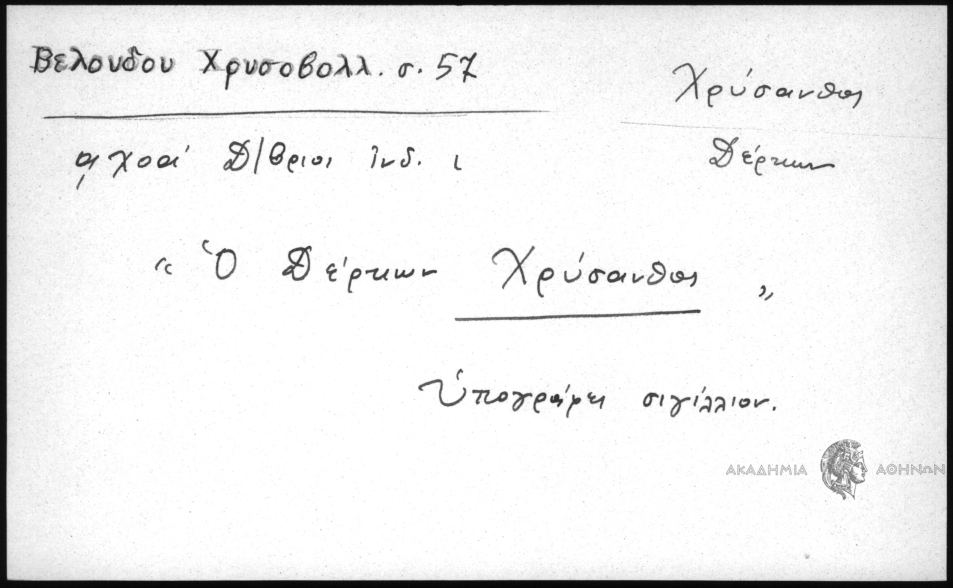 Βελούδου Χρυσοβολλ. σ. 57
Χρύσανθος
Δέρκων
͵αχοαʹ Δ/βριοι Ἰνδ. ι
« Ὁ Δέρκων Χρύσανθος »
Ὑπογράφει σιγίλλιον.
ΑΚΑΔΗΜΙΑ ΑΘΗΝΩΝ